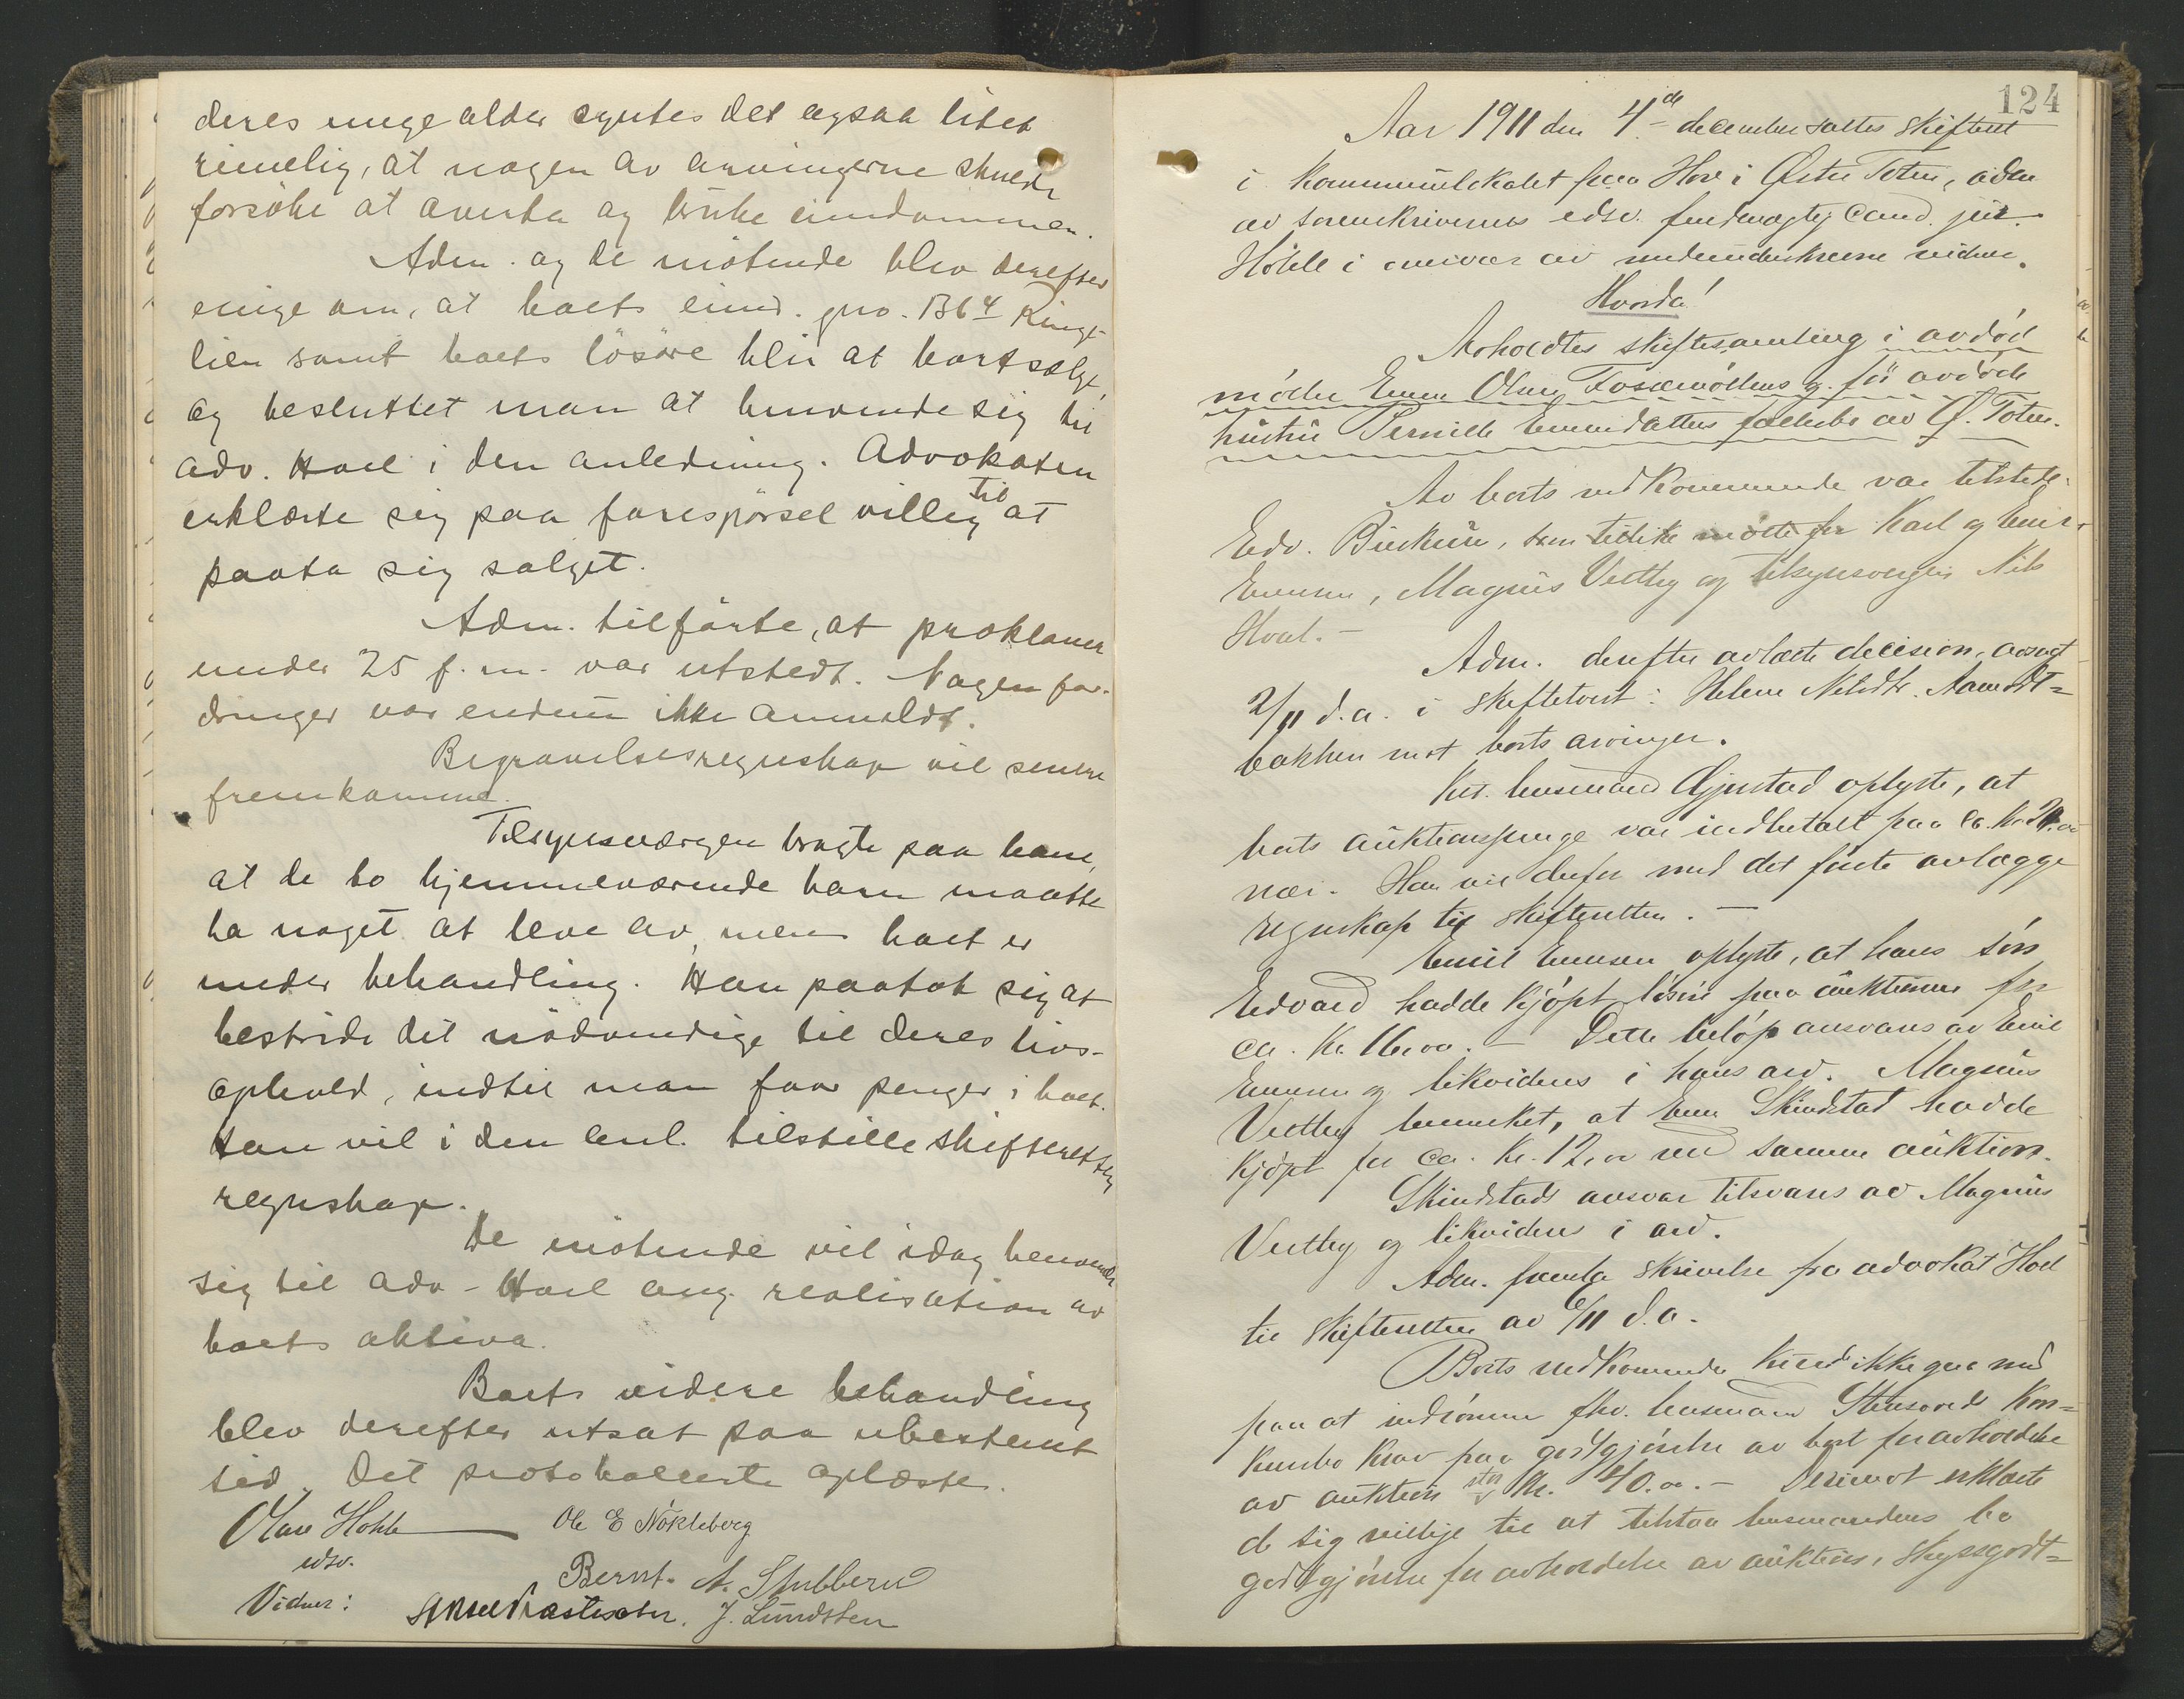 deres unge alder syntes det ogsaa litet
rimelig, at nogen av arvingerne skulde
forsøke at overta og bruke eiendommen.
Adm. og de møtende blev derefter
enige om, at boets eiend. gno. 136 4 Ringe-
lien samt boets løsøre blir at bortsælge,
og besluttet man at henvende sig til
adv. Hoel i den anledning. Advokaten
erklærte sig paa forespørsel villig til at
paata sig salget.
Adm. tilførte, at proklama
under 25 f. m. var utstedt. Nogen for-
dringer var endnu ikke anmeldt.
Begravelsesregnskap vil senere
fremkomme.
Tilsynsværgen bragte paa bane,
at de to hjemmeværende barn maatte
ha noget at leve av, mens boet er
under behandling. Han paatok sig at
bestride det nødvendige til deres livs-
ophold, indtil man faar penger i boet.
Han vil i den anl. tilstille skifteretten
regnskap.
De møtende vil idag henvende
sig til adv. Hoel ang. realisation av
boets aktiva.
Boets videre behandling
blev derefter utsat paa ubestemt
tid. Det protokollerte oplæste.
Olav Hohle Ole E Nökleberg
edsv. Bernt. A. Stubberud
Vidner: J. Lundsten
124
Aar 1911 den 4de december sattes skifteret
i kommunelokalet paa Hov i Østre Toten,
av sorenskriverens edsv. fuldmægtig cand. jur.
Hohle i overvær av undertegnede vidner.
Hvorda!
Avholdtes skiftesamling i avdød
møller Even Olsen Fossemøllens og før avdøde
hustru Pernille Evensdatters fællesbo av Ø. Toten.
Av boets vedkommende var tilstede:
Edv. Buskun, som tillike møtte for Karl og Emil
Evensen, Magnus Vestby og tilsynsvergen Nils
Hoel. -
Adm. derefter avlæste decision, avsagt
2/11 d. a. i skiftetvist: Helene Nilsdtr. Aamodt-
bakken mot boets arvinger.
Kst. lensmand Gjestad oplyste, at
boets auktionspenge var indbetalt paa ca. kr.
nær. Han vil derfor med det første avlægge
regnskap til skifteretten. -
Emil Evensen oplyste, at hans søn
Edvard hadde kjøpt løsøre paa auktionen for
ca. kr. 16.00. - Dette beløp ansvares av Emil
Evensen og likvideres i hans arv. Magnus
Vestby bemerket, at Even Skindstad hadde
kjøpt for ca. kr. 12,00 ved samme auktion.
Skindstads ansvar tilsvares av Magnus
Vestby og likvideres i arv.
Adm. fremla skrivelse fra advokat Hoel
til skifteretten av 6/11 d. a.
Boets vedkommende kunde ikke gaa med
paa at indrømme fhv. lensmand Stensrud kon-
kursbo krav paa godtgjørelse av boet for avholdelse
av auktion stor kr. 40.00. - Derimot erklærte
de sig villige til at tilstaa lensmandens bo
godtgjørelse for avholdelse av auktion, skyssgodt-